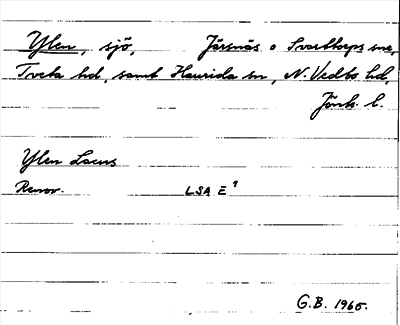 Ylen, sjö, Järsnäs o Svarttorps snr,
Tveta hd, samt Haurida sn, N. Vedbo hd,
Jönk. l.
Ylen Lacus
Renov. LSA E 9
G.B. 1965.